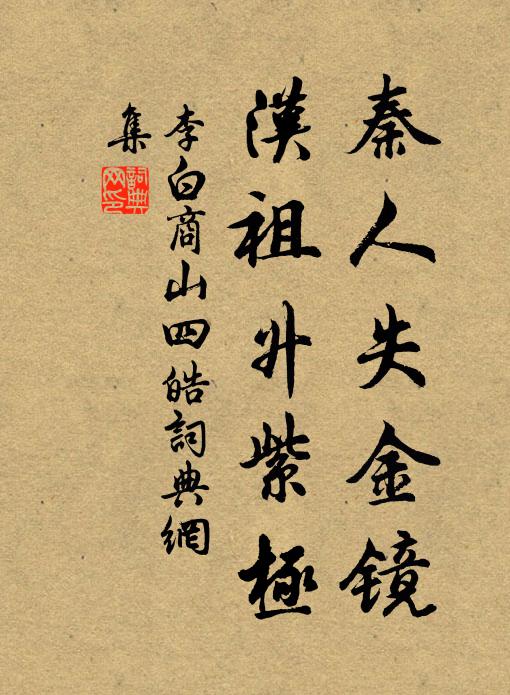 秦人失金镜
漢祖升紫極
李白商山四皓詞典網
集
詞典网印